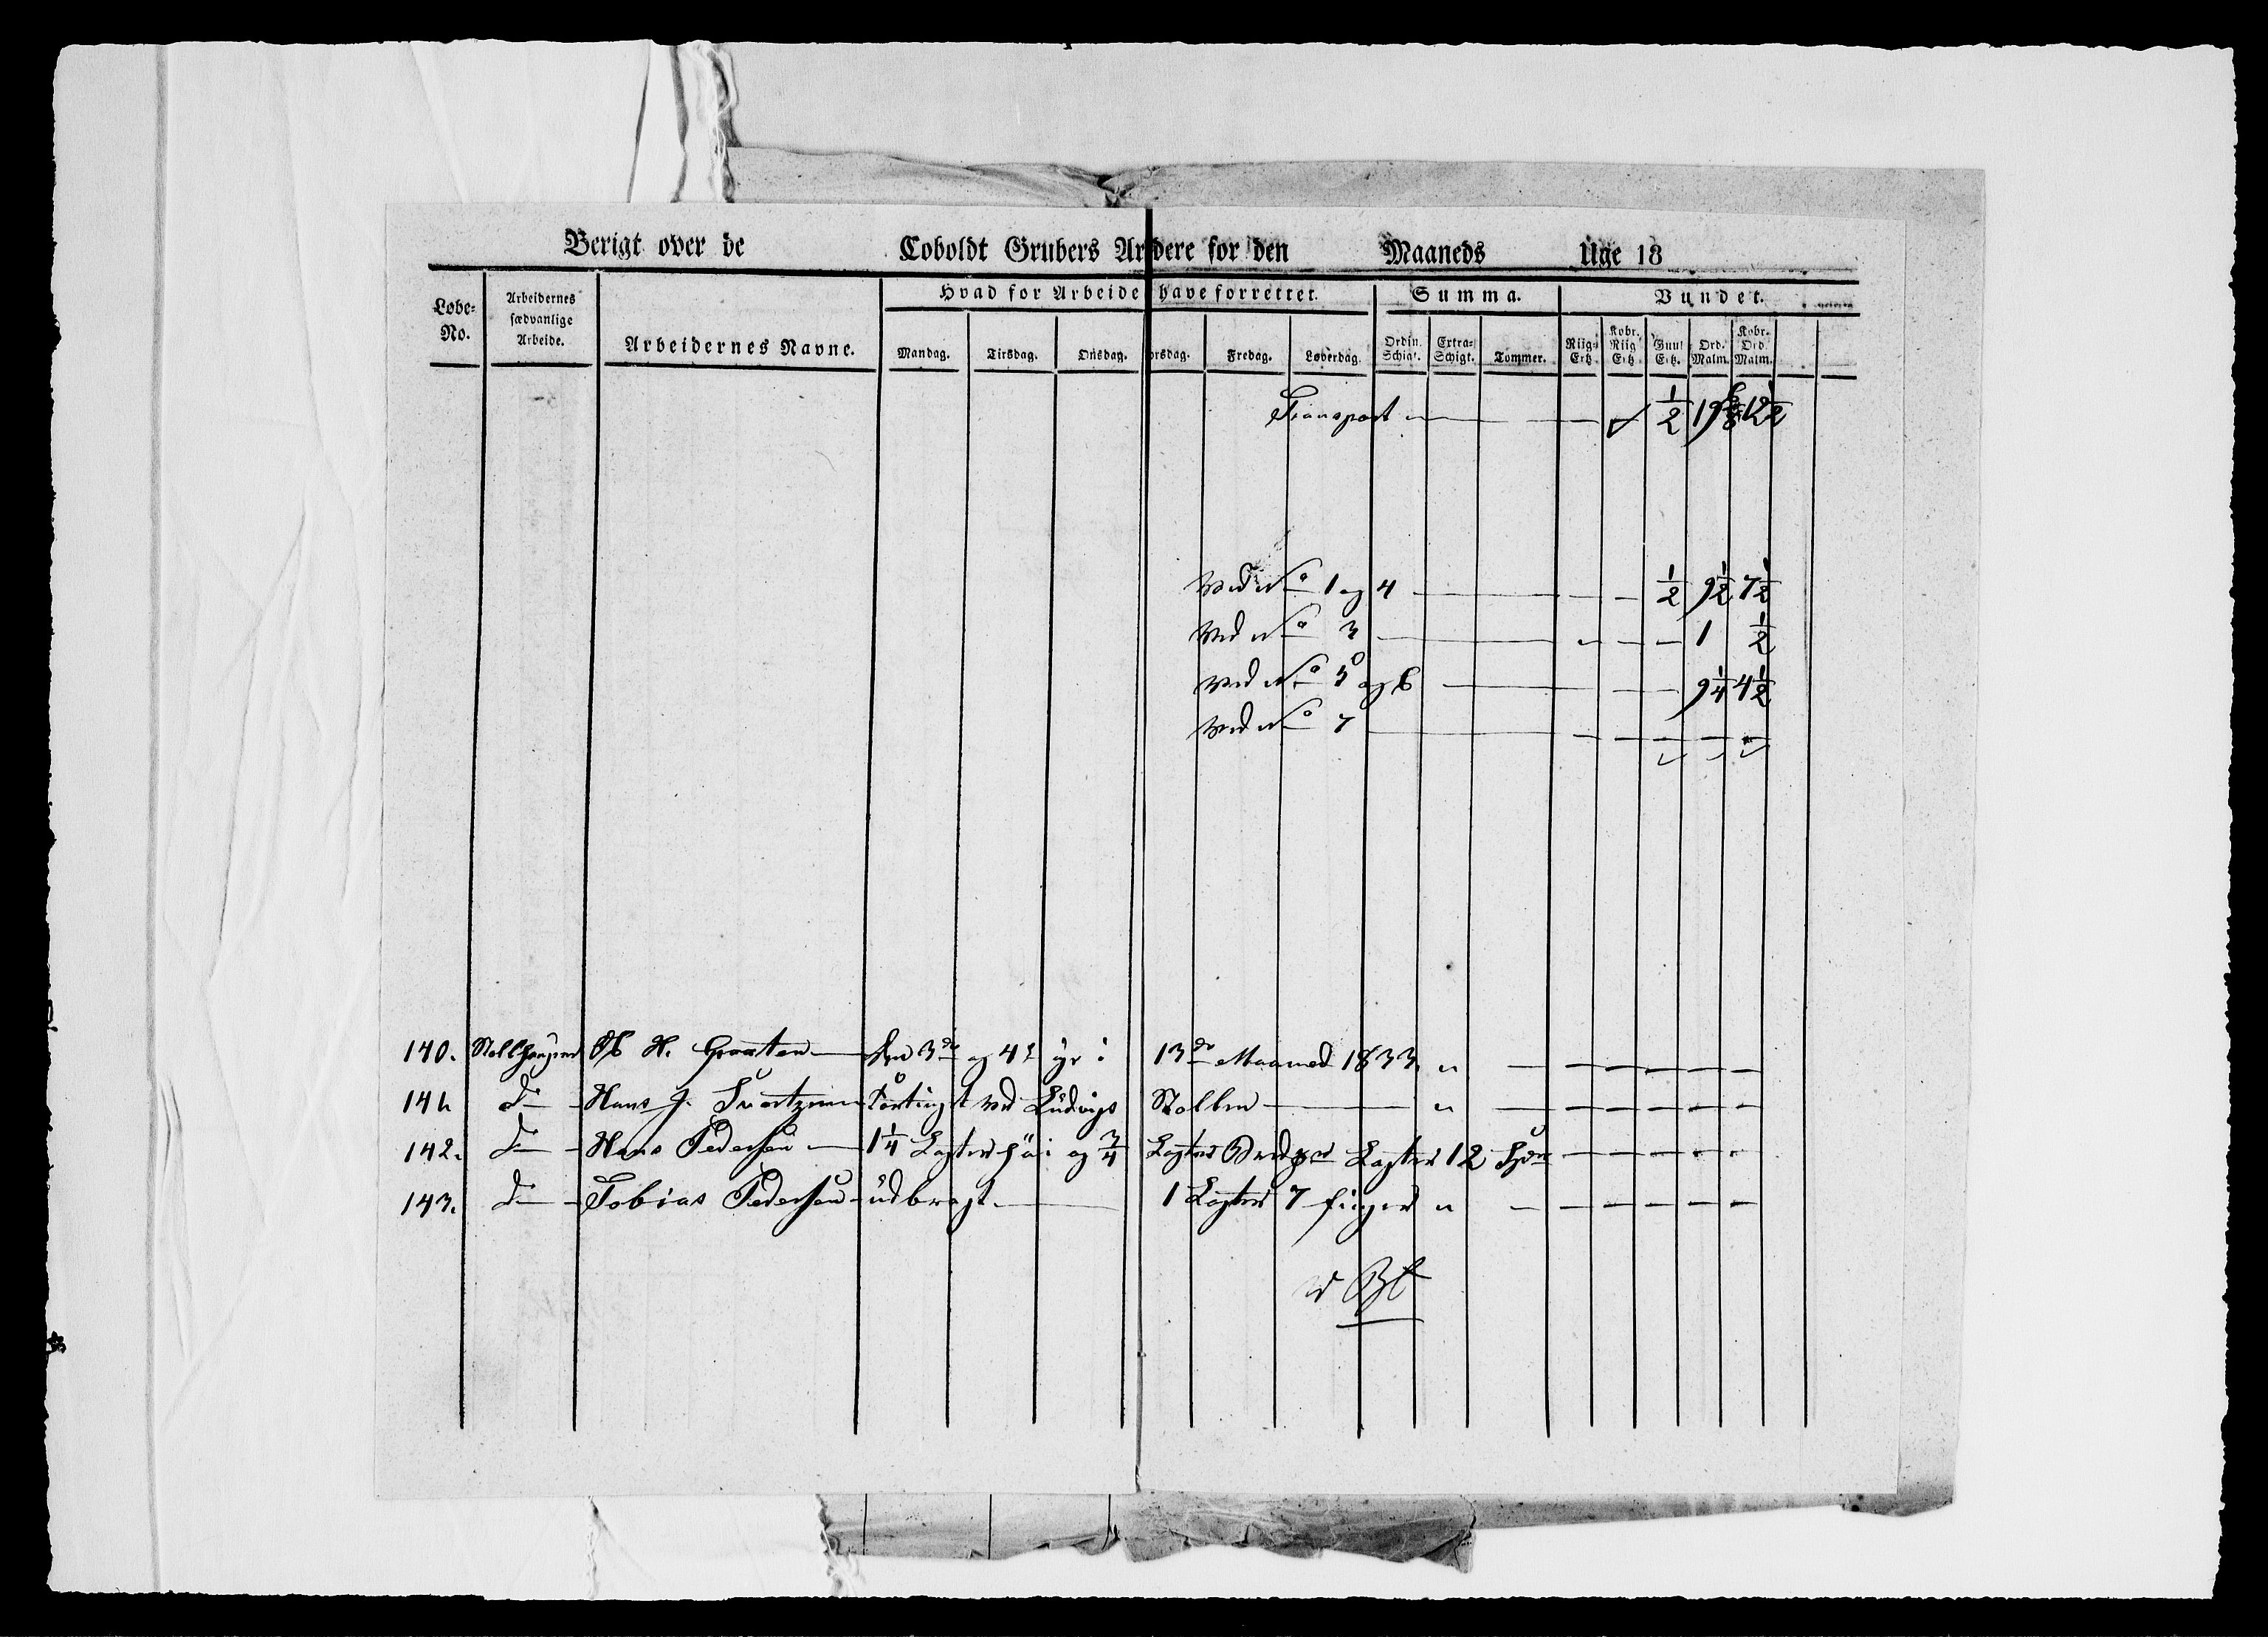 Berigt over de Coboldt Grubers Ar dere for den Maaneds Uge 18
Løbe-No.
Arbeidernes sædvanlige Arbeide.
Arbeidernes Navne.
Hvad for Arbeide have forrettet.
Summa.
Vundet.
Mandag. Tirsdag. Onsdag. orsdag. Fredag. Løberdag. Ordin. Schigt. Extra-Schigt. Tommer. Riig-Ertz. Kobr. Riig Ertz. Guul Ertz. Ord. Malm. Kobr. Ord. Malm.
Transport — 1/2 12 1/2
Ved No 1 og 4 — 1/2 9 1/2 7 1/2
Ved No 3 — 1 1/2
Ved No 5 og 6 — 9 1/4 4 1/2
Ved No 7 —
140. H. Graaten — 3de og 4de i 13de Maaned 1833. „ —
141. do — Hans J. Fortingt ved Ludvigs Stollen — „ —
142. do — Hans Pedersen — 1 1/4 Lagter og 3/4 Lagter Lagter 12
143. do — Tobias Pedersen — udbragt. — 1 Lagter 7 finger „ —